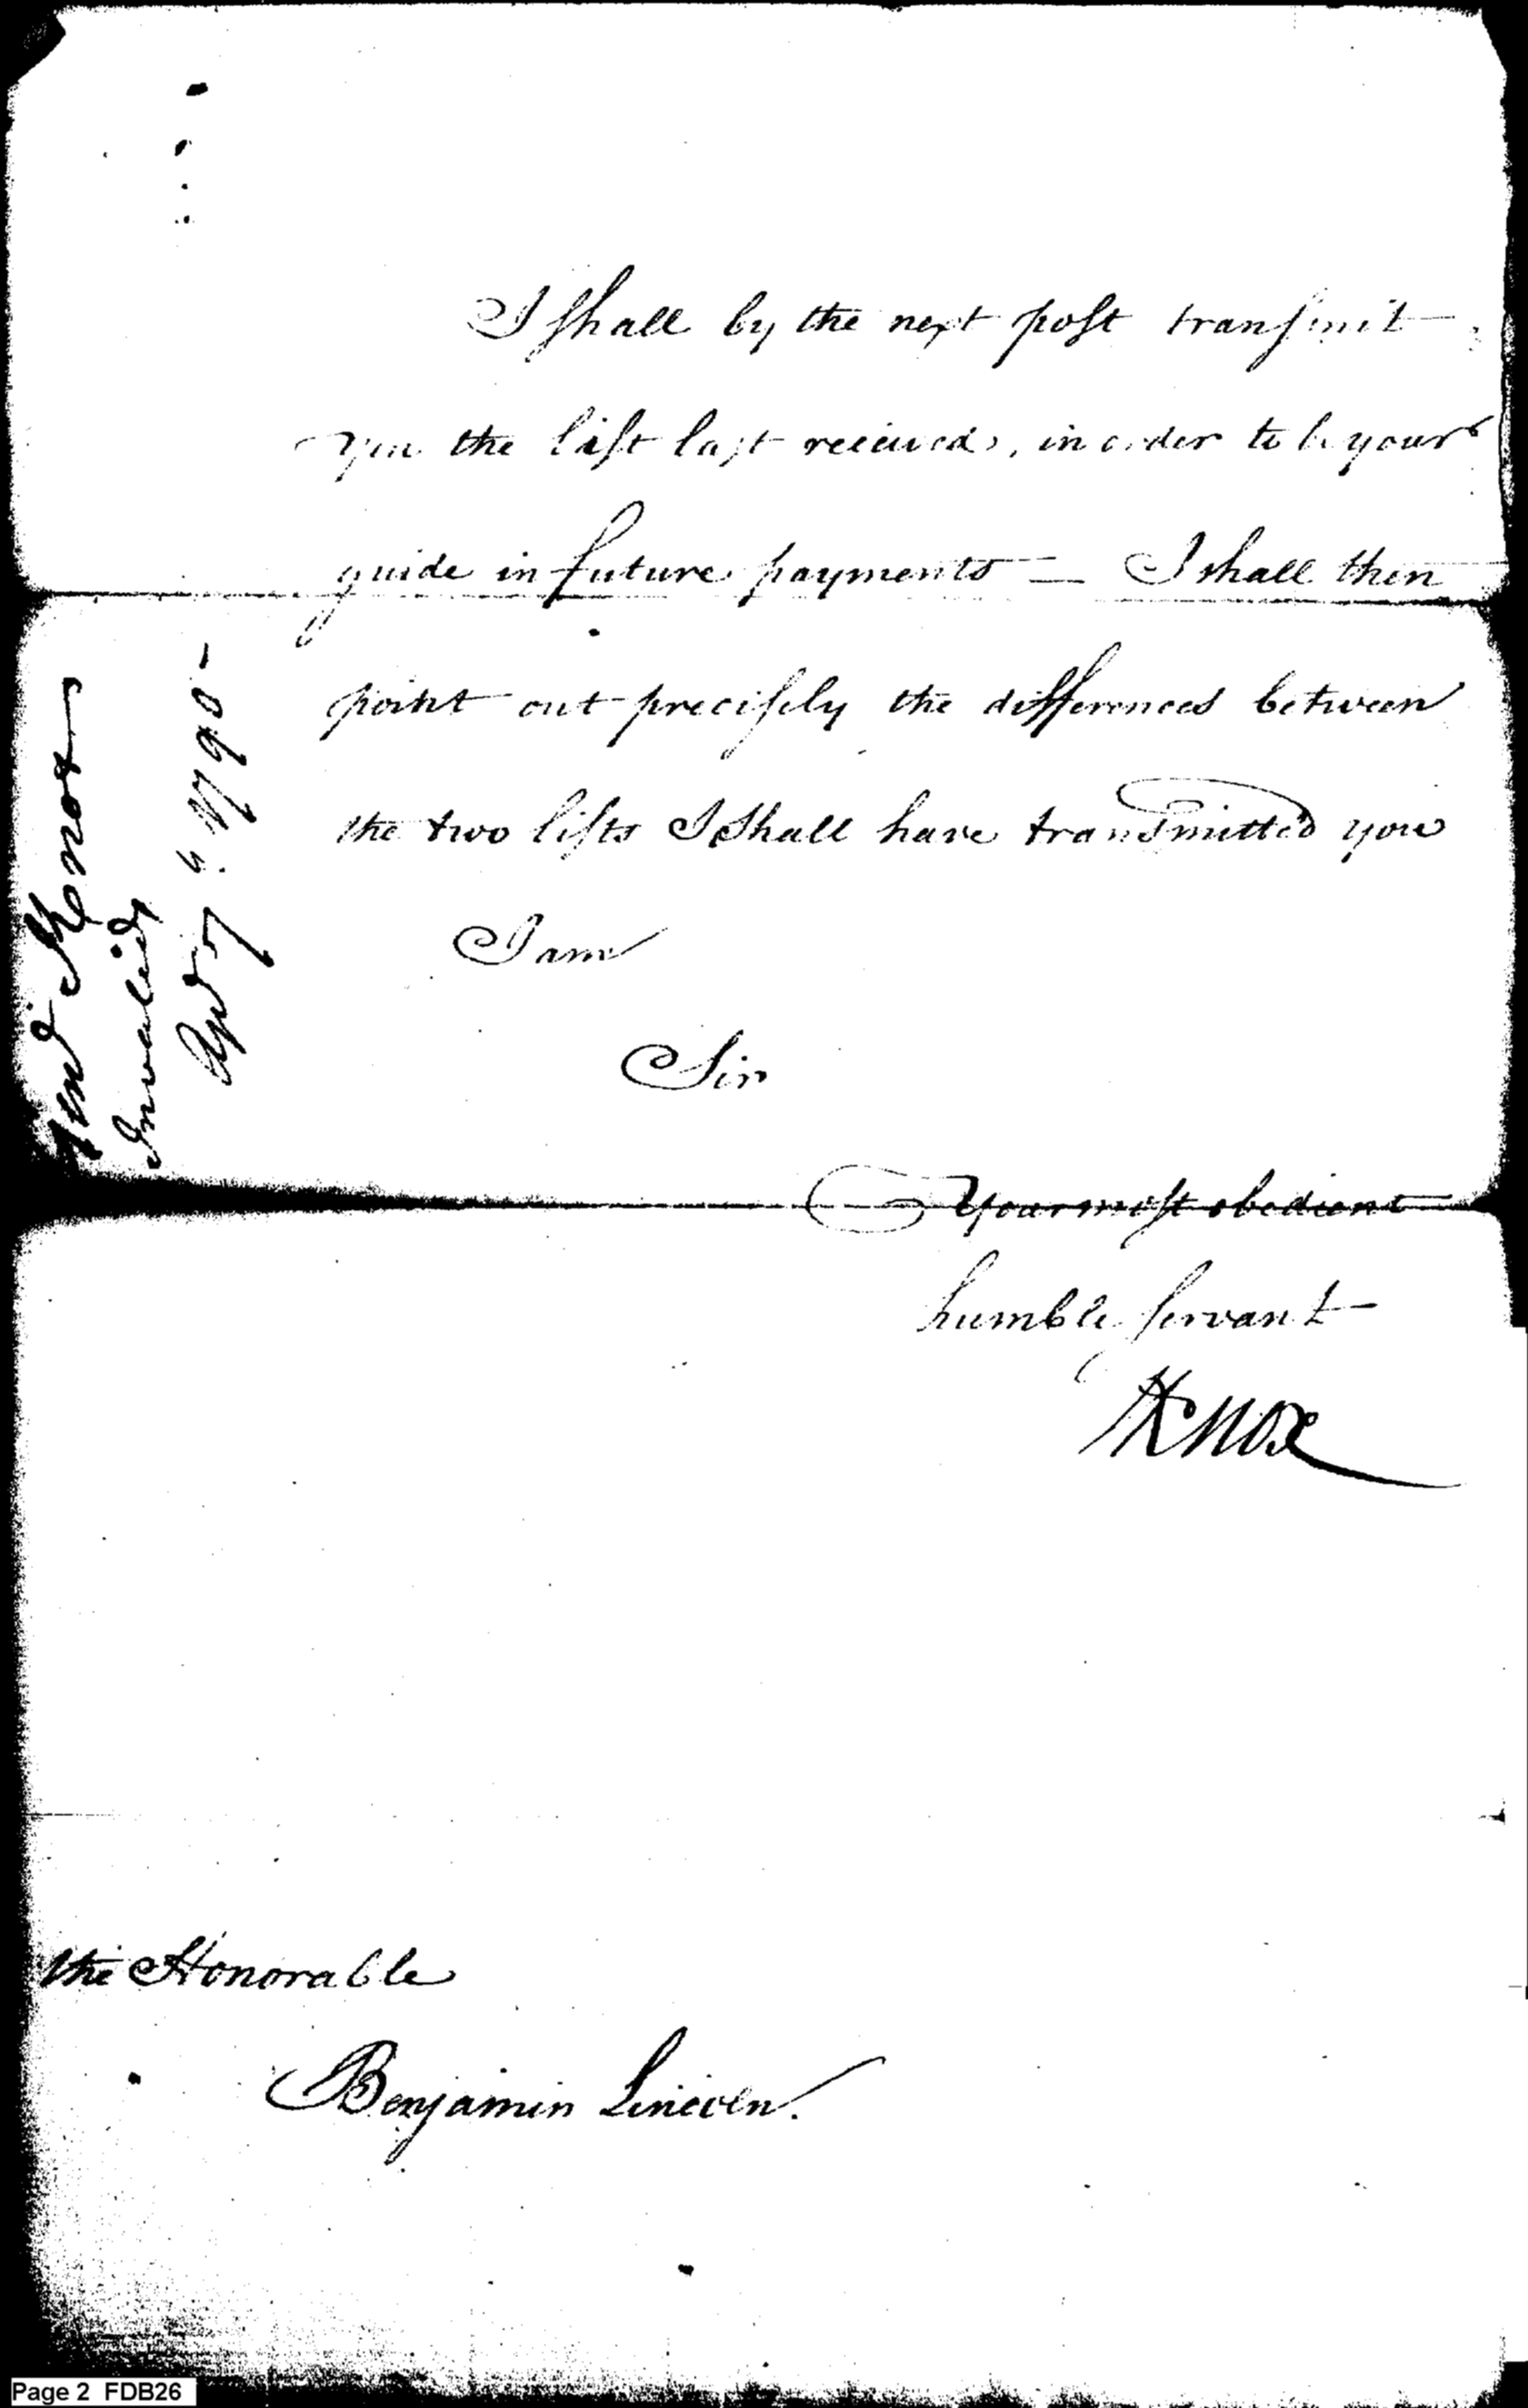 I shall by the next post transmit
you the list last received, in order to be your
guide in future payments — I shall then
point out precisely the differences between
the two lists I shall have transmitted you
I am
Sir
Your most obedient
humble servant
HKnox
the Honorable
Benjamin Lincoln.
Genl Knox
Invalids
Apl 7th 1790-
Page 2 FDB26